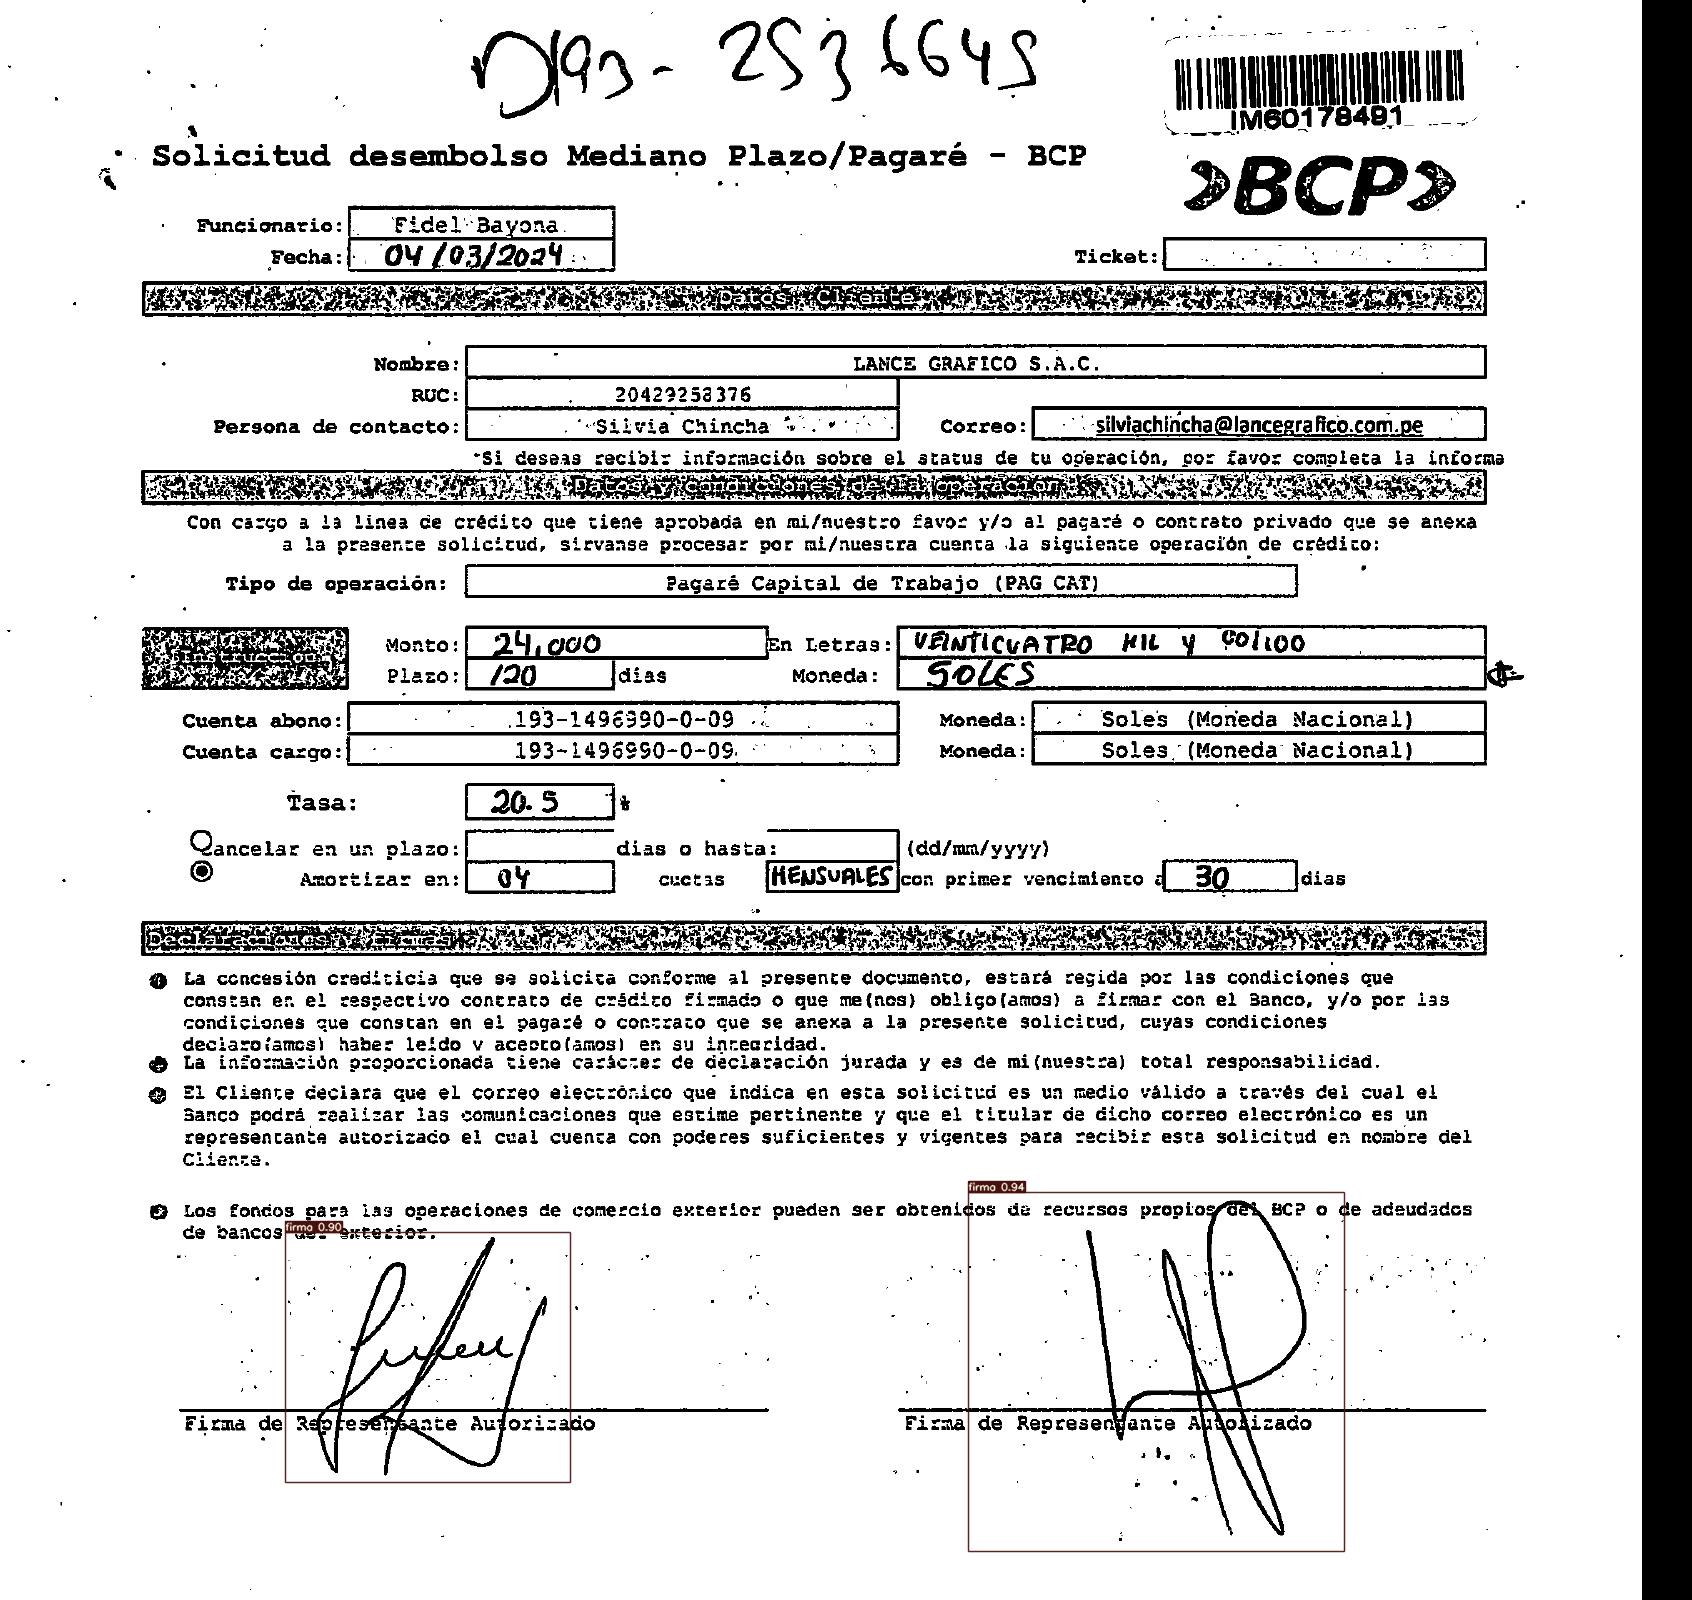 D193-2536645
IM60178491
Solicitud desembolso Mediano Plazo/Pagaré - BCP
BCP
Funcionario: Fidel Bayona
Fecha: 04/03/2024 Ticket:
Datos Cliente
Nombre: LANCE GRAFICO S.A.C.
RUC: 20429258376
Persona de contacto: Silvia Chincha Correo: silviachincha@lancegrafico.com.pe
*Si deseas recibir información sobre el status de tu operación, por favor completa la informa
Datos y condiciones de la operación
Con cargo a la linea de crédito que tiene aprobada en mi/nuestro favor y/o al pagaré o contrato privado que se anexa
a la presente solicitud, sirvanse procesar por mi/nuestra cuenta la siguiente operación de crédito:
Tipo de operación: Pagaré Capital de Trabajo (PAG CAT)
Instrucción
Monto: 24,000 En Letras: VEINTICUATRO MIL Y 00/100
Plazo: 120 dias Moneda: SOLES
Cuenta abono: 193-1496990-0-09 Moneda: Soles (Moneda Nacional)
Cuenta cargo: 193-1496990-0-09 Moneda: Soles (Moneda Nacional)
Tasa: 20.5 %
Cancelar en un plazo: dias o hasta: (dd/mm/yyyy)
Amortizar en: 04 cuotas MENSUALES con primer vencimiento a 30 dias
Declaraciones y firmas
La concesión crediticia que se solicita conforme al presente documento, estará regida por las condiciones que
constan en el respectivo contrato de crédito firmado o que me(nos) obligo(amos) a firmar con el Banco, y/o por las
condiciones que constan en el pagaré o contrato que se anexa a la presente solicitud, cuyas condiciones
declaro(amos) haber leido y acepto(amos) en su integridad.
La información proporcionada tiene carácter de declaración jurada y es de mi(nuestra) total responsabilidad.
El Cliente declara que el correo electrónico que indica en esta solicitud es un medio válido a través del cual el
Banco podrá realizar las comunicaciones que estime pertinente y que el titular de dicho correo electrónico es un
representante autorizado el cual cuenta con poderes suficientes y vigentes para recibir esta solicitud en nombre del
Cliente.
firma 0.94
Los fondos para las operaciones de comercio exterior pueden ser obtenidos de recursos propios del BCP o de adeudados
de bancos del exterior.
firma 0.90
Firma de Representante Autorizado Firma de Representante Autorizado